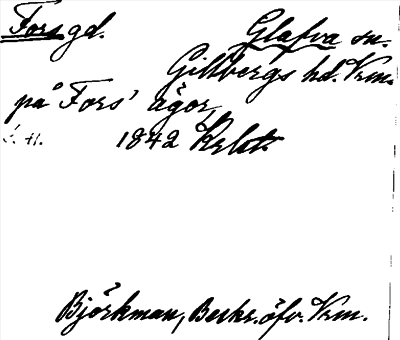 Fors gd. Glafva sn.
Gillbergs hd. Vrm.
på Fors' ägor,
1842 Krbl.
Björkman, Beskr. öfv. Vrm.